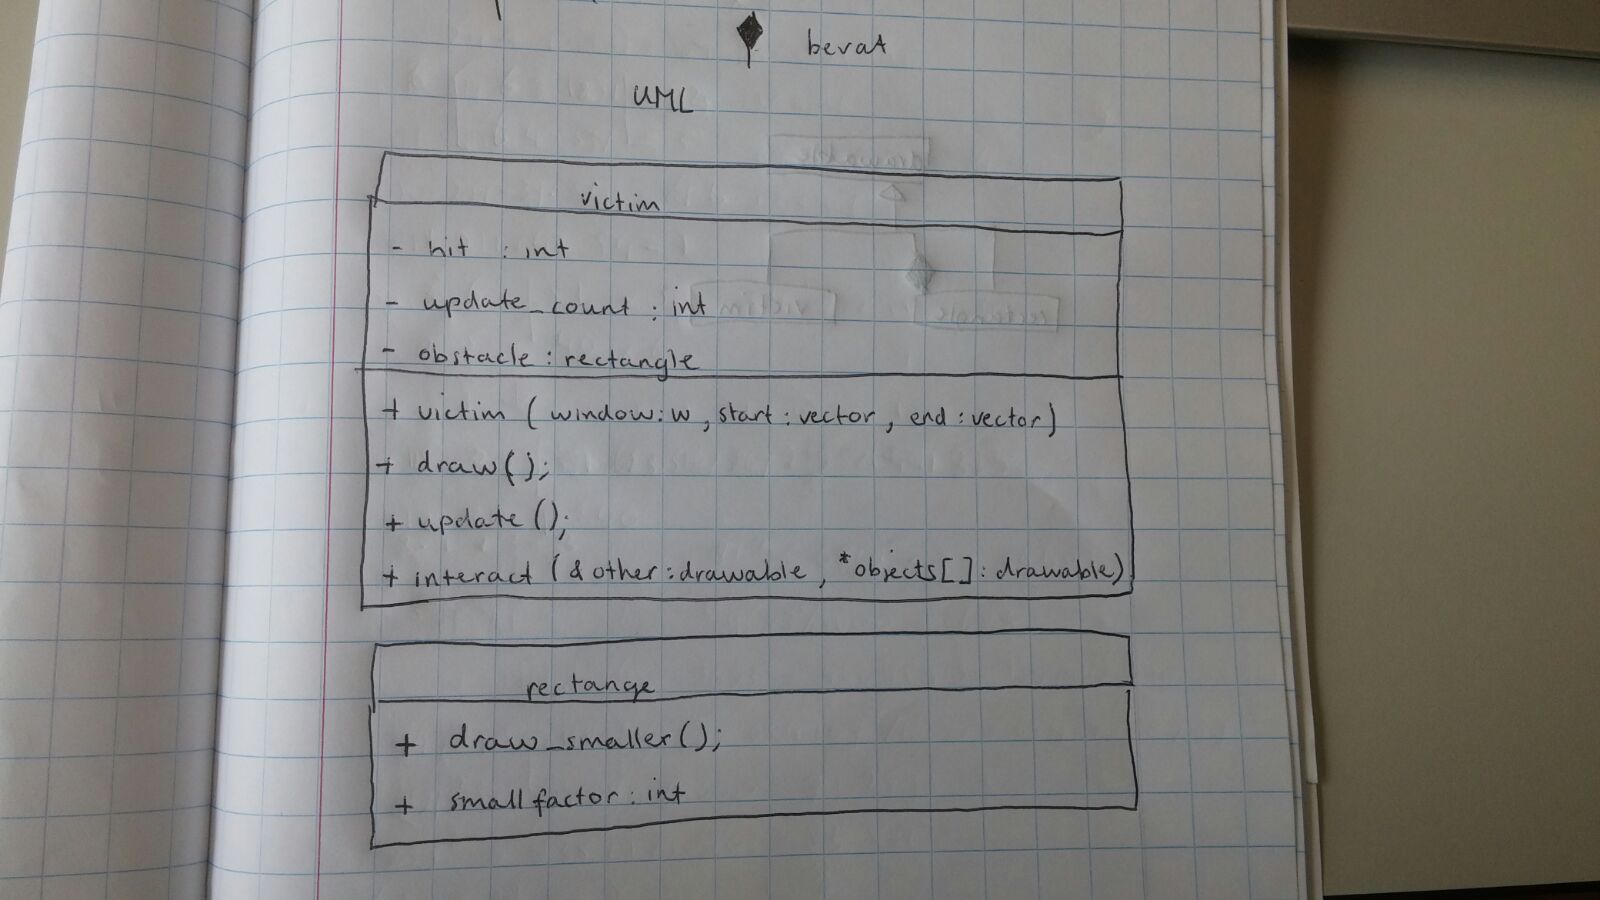 bevat
UML
victim
- hit : int
- update_count : int
- obstacle : rectangle
+ victim ( window : w , start : vector , end : vector )
+ draw ( );
+ update ( );
+ interact ( & other : drawable , *objects [ ] : drawable )
rectange
+ draw_smaller ( );
+ smallfactor : int